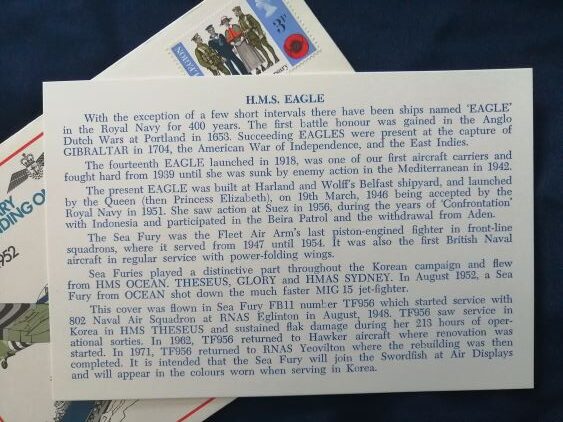 3p
LEGION
H.M.S. EAGLE
With the exception of a few short intervals there have been ships named 'EAGLE'
in the Royal Navy for 400 years. The first battle honour was gained in the Anglo
Dutch Wars at Portland in 1653. Succeeding EAGLES were present at the capture of
GIBRALTAR in 1704, the American War of Independence, and the East Indies.
The fourteenth EAGLE launched in 1918, was one of our first aircraft carriers and
fought hard from 1939 until she was sunk by enemy action in the Mediterranean in 1942.
The present EAGLE was built at Harland and Wolff's Belfast shipyard, and launched
by the Queen (then Princess Elizabeth), on 19th March, 1946 being accepted by the
Royal Navy in 1951. She saw action at Suez in 1956, during the years of 'Confrontation'
with Indonesia and participated in the Beira Patrol and the withdrawal from Aden.
The Sea Fury was the Fleet Air Arm's last piston-engined fighter in front-line
squadrons, where it served from 1947 until 1954. It was also the first British Naval
aircraft in regular service with power-folding wings.
Sea Furies played a distinctive part throughout the Korean campaign and flew
from HMS OCEAN. THESEUS, GLORY and HMAS SYDNEY. In August 1952, a Sea
Fury from OCEAN shot down the much faster MIG 15 jet-fighter.
This cover was flown in Sea Fury FB11 number TF956 which started service with
802 Naval Air Squadron at RNAS Eglinton in August, 1948. TF956 saw service in
Korea in HMS THESEUS and sustained flak damage during her 213 hours of oper-
ational sorties. In 1962, TF956 returned to Hawker aircraft where renovation was
started. In 1971, TF956 returned to RNAS Yeovilton where the rebuilding was then
completed. It is intended that the Sea Fury will join the Swordfish at Air Displays
and will appear in the colours worn when serving in Korea.
RY
DING O
1952